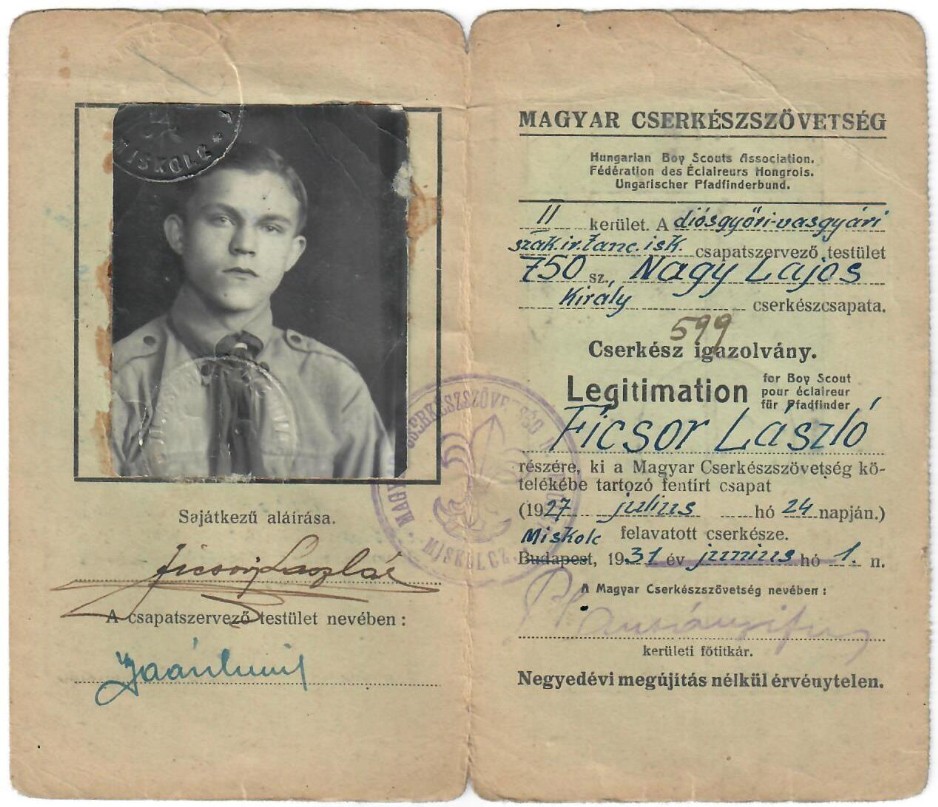 MISKOLC
Sajátkezű aláírása.
Ficsor László
A csapatszervező testület nevében :
MAGYAR CSERKÉSZSZÖVETSÉG
Hungarian Boy Scouts Association.
Fédération des Éclaireurs Hongrois.
Ungarischer Pfadfinderbund.
II kerület. A diósgyőri-vasgyári
szak.ir.tanc.isk csapatszervező testület
750 sz. Nagy Lajos
Király cserkészcsapata.
599
Cserkész igazolvány.
Legitimation for Boy Scout
pour éclaireur
für Pfadfinder
Ficsor László
részére, ki a Magyar Cserkészszövetség kö-
telékébe tartozó fentírt csapat
(1927 julius hó 24 napján.)
felavatott cserkésze.
Miskolc
Budapest, 1931 év junius hó 1. n.
A Magyar Cserkészszövetség nevében :
kerületi főtitkár.
Negyedévi megújítás nélkül érvénytelen.